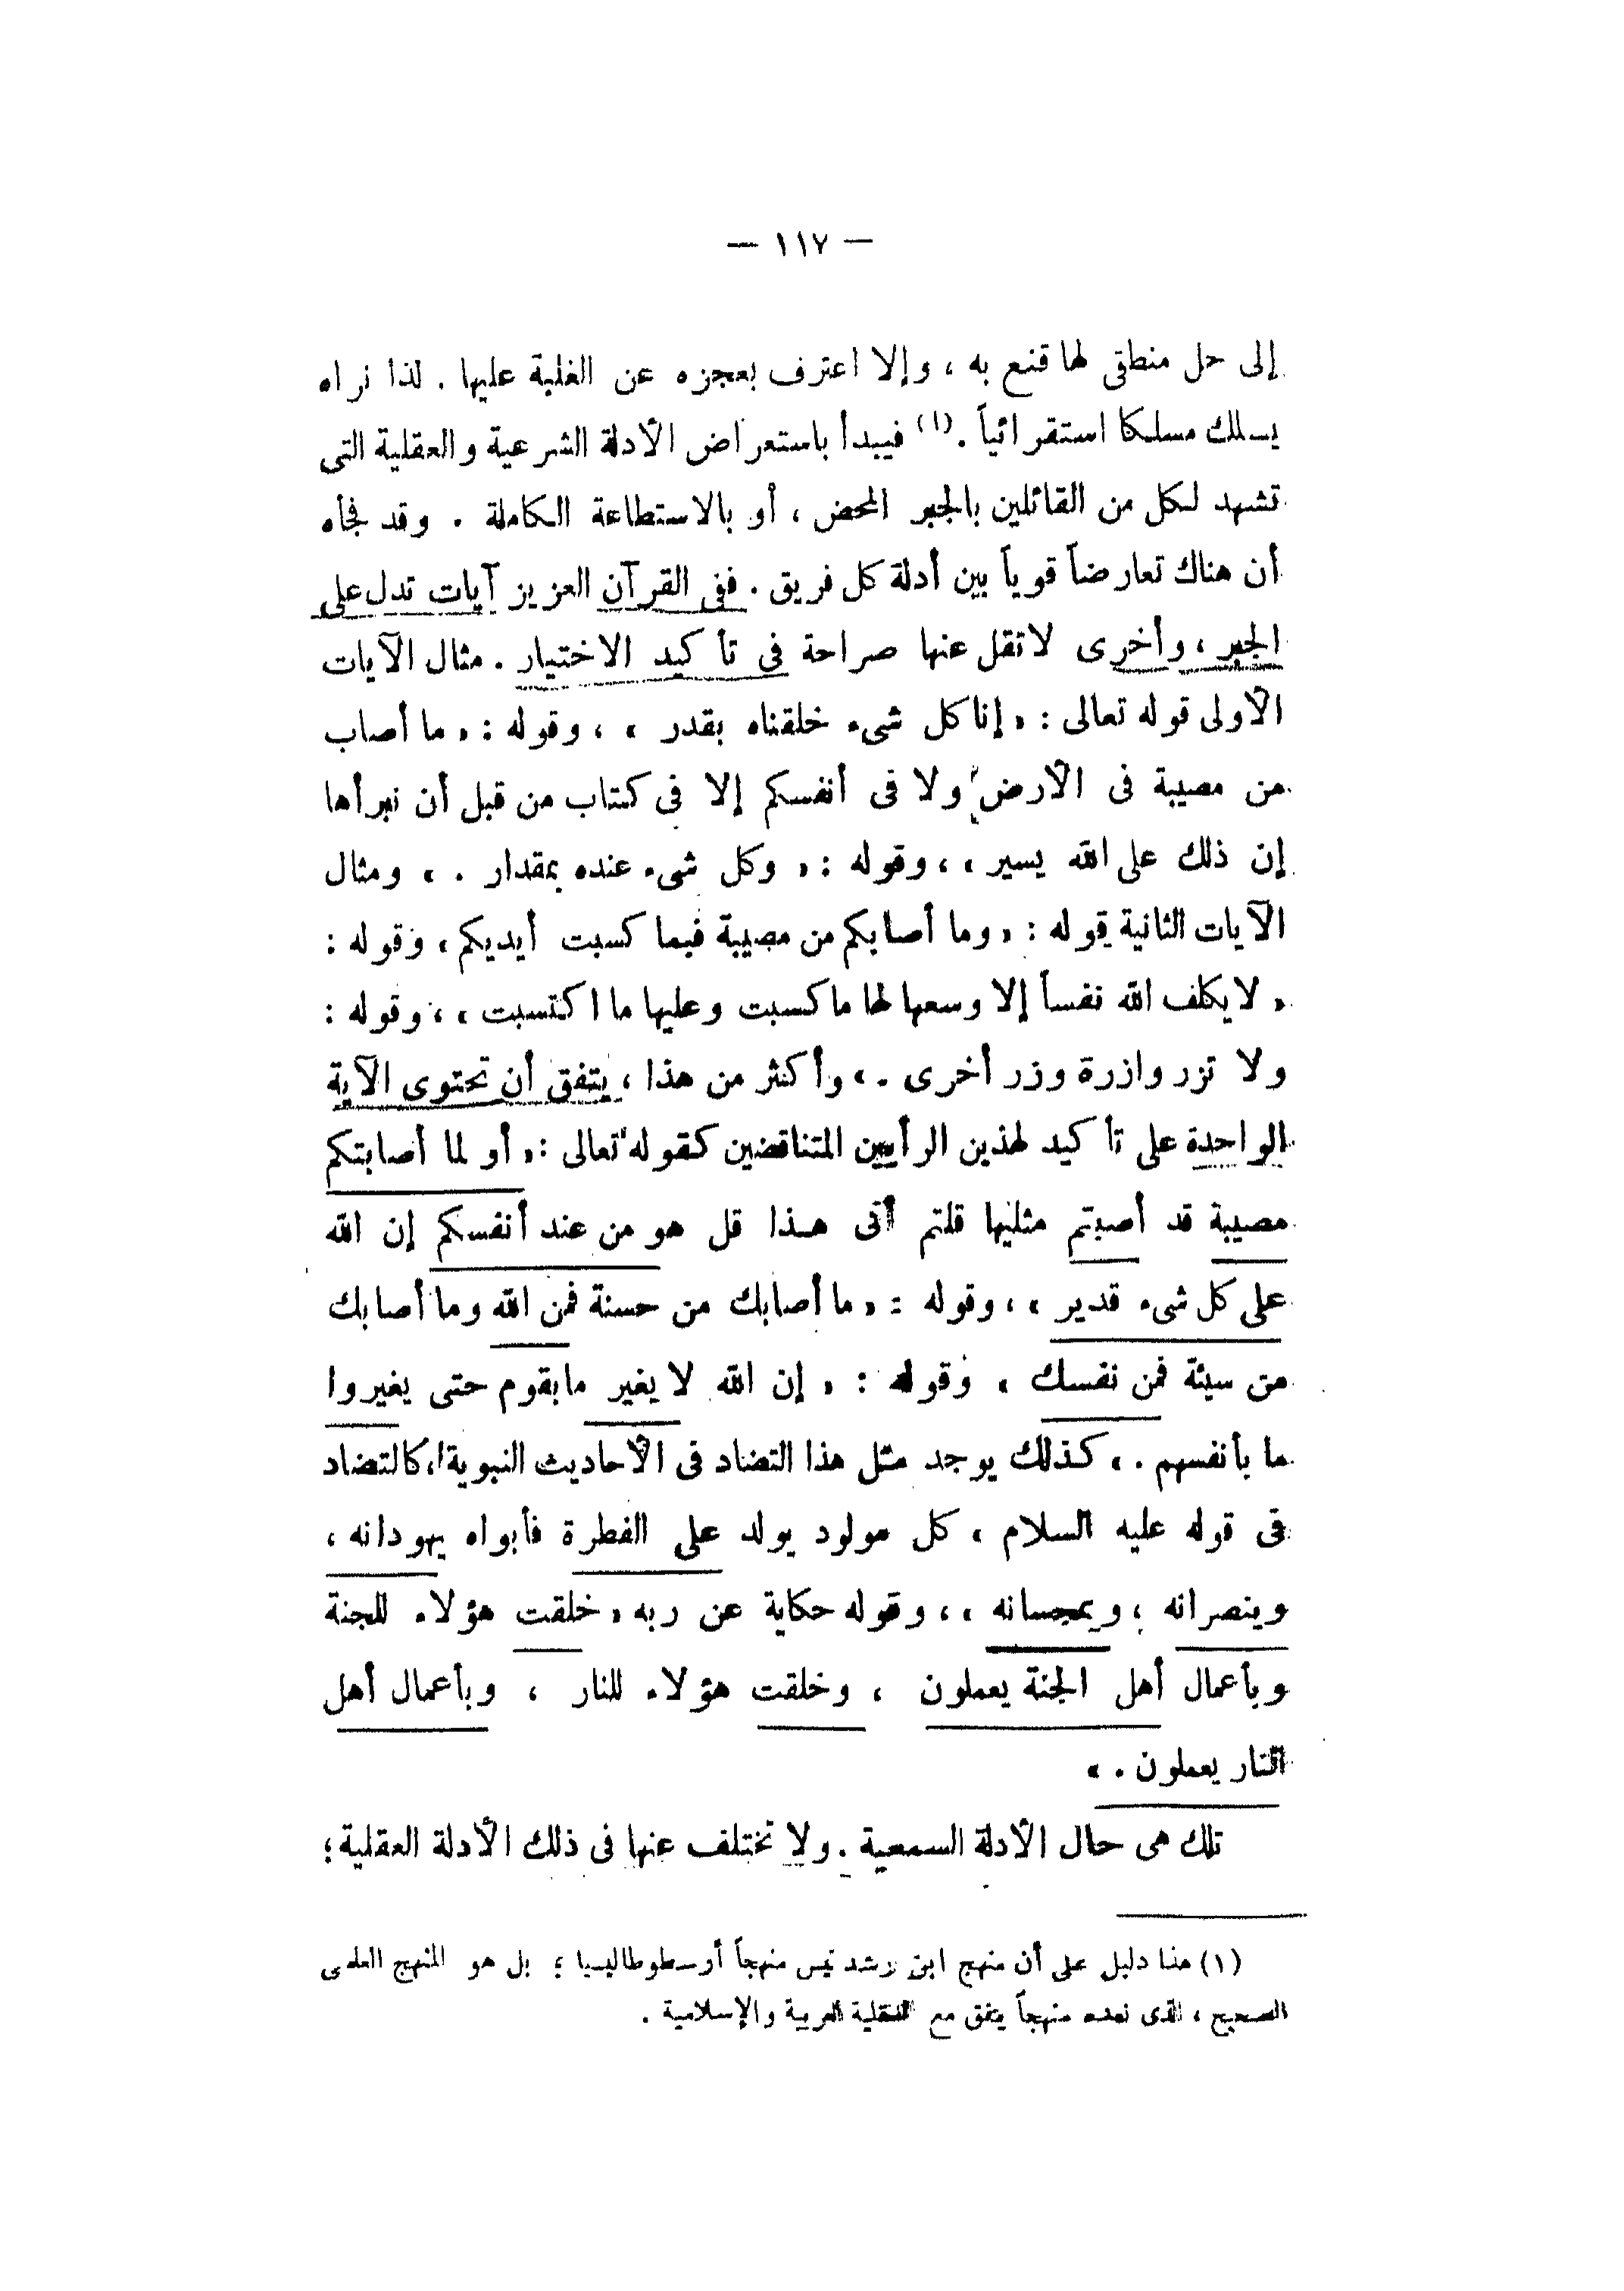 — ١١٧ —
إلى حل منطقى لها قنع به ، وإلا اعترف بعجزه عن الغلبة عليها . لذا نراه
يسلك مسلكا استقرائياً .(١) فيبدأ باستعراض الأدلة الشرعية والعقلية التى
تشهد لكل من القائلين بالجبر المحض ، أو بالاستطاعة الكاملة . وقد فجأه
أن هناك تعارضاً قوياً بين أدلة كل فريق . ففى القرآن العزيز آيات تدل على
الجبر ، وأخرى لا تقل عنها صراحة فى تأكيد الاختيار . مثال الآيات
الأولى قوله تعالى : « إنا كل شىء خلقناه بقدر » ، وقوله : « ما أصاب
من مصيبة فى الأرض ولا فى أنفسكم إلا فى كتاب من قبل أن نبرأها
إن ذلك على الله يسير » ، وقوله : « وكل شىء عنده بمقدار . » ومثال
الآيات الثانية قوله : « وما أصابكم من مصيبة فبما كسبت أيديكم » وقوله :
« لا يكلف الله نفساً إلا وسعها لها ما كسبت وعليها ما اكتسبت » ، وقوله :
ولا تزر وازرة وزر أخرى . » وأكثر من هذا ، يتفق أن تحتوى الآية
الواحدة على تأكيد لهذين الرأيين المتناقضين كقوله تعالى : « أو لما أصابتكم
مصيبة قد أصبتم مثليها قلتم أنى هـذا قل هو من عند أنفسكم إن الله
على كل شىء قدير » ، وقوله : « ما أصابك من حسنة فمن الله وما أصابك
من سيئة فمن نفسك » وقوله : « إن الله لا يغير ما بقوم حتى يغيروا
ما بأنفسهم . » كذلك يوجد مثل هذا التضاد فى الأحاديث النبوية ، كالتضاد
فى قوله عليه السلام « كل مولود يولد على الفطرة فأبواه يهودانه ،
وينصرانه ، ويمجسانه » ، وقوله حكاية عن ربه « خلقت هؤلاء للجنة
وبأعمال أهل الجنة يعملون ، وخلقت هؤلاء للنار ، وبأعمال أهل
النار يعملون . »
تلك هى حال الأدلة السمعية . ولا تختلف عنها فى ذلك الأدلة العقلية ؛
(١) هذا دليل على أن منهج ابن رشد ليس منهجاً أرسطوطاليسيا ؛ بل هو المنهج العلمى
الصحيح ، الذى نعده منهجاً يتفق مع العقلية العربية والإسلامية .